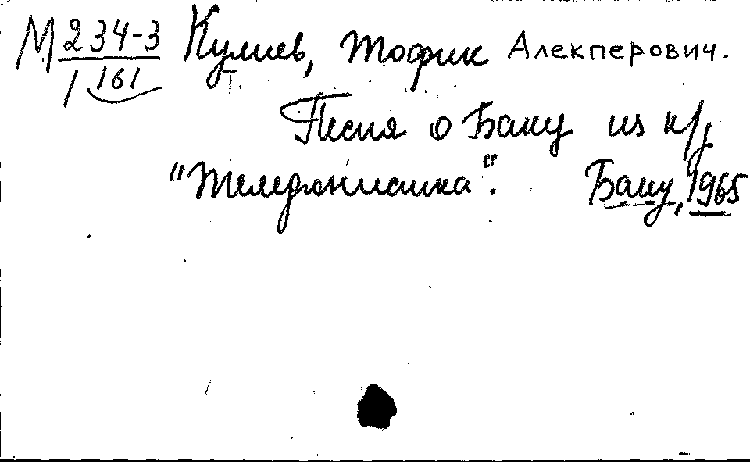 М 234-3 Кулиев, Тофик Алекперович.
161
Песня о Баку из к/ф
"Телефонистка". Баку, 1965